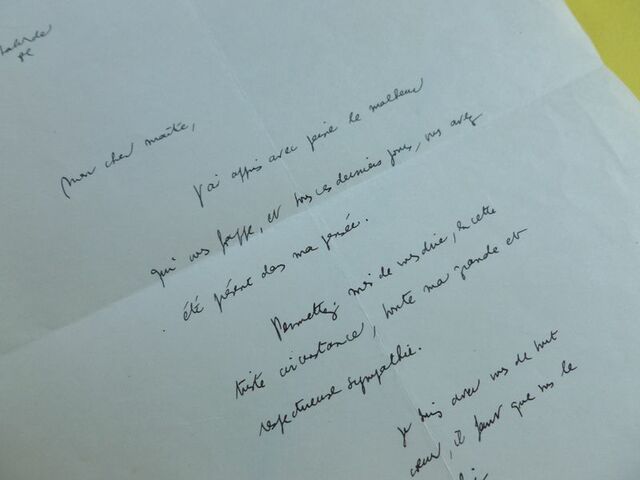 Mon cher maître,
J'ai appris avec peine le malheur
qui vous frappe, et tous ces derniers jours, vous avez
été présent dans ma pensée.
Permettez moi de vous dire, en cette
triste circonstance, toute ma grande et
respectueuse sympathie.
Je suis avec vous de tout
cœur, il faut que vous le